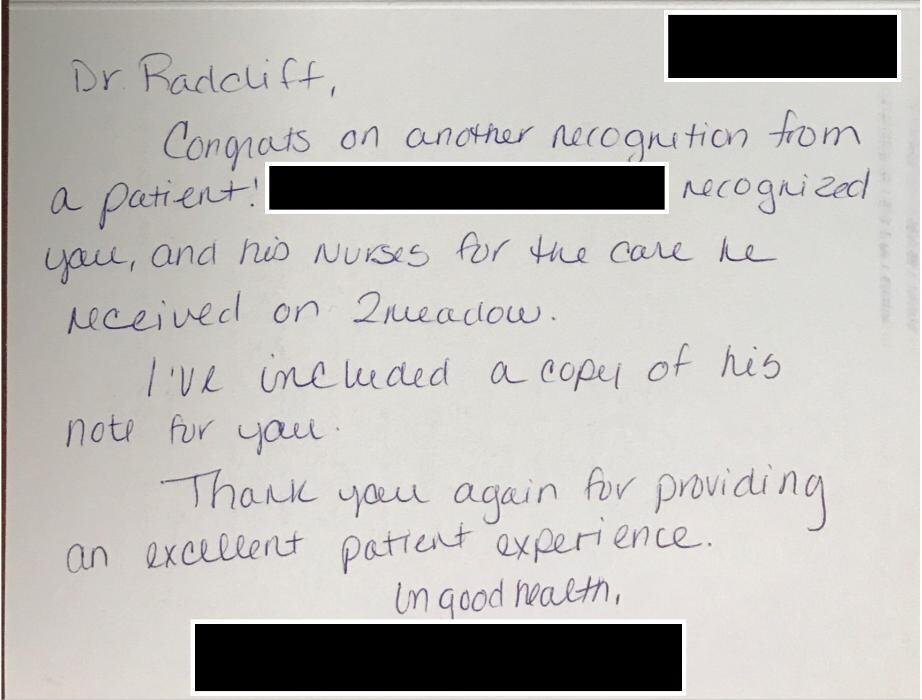 Dr. Radcliff,
Congrats on another recognition from
a patient! recognized
you, and his nurses for the care he
received on 2meadow.
I've included a copy of his
note for you.
Thank you again for providing
an excellent patient experience.
In good health,